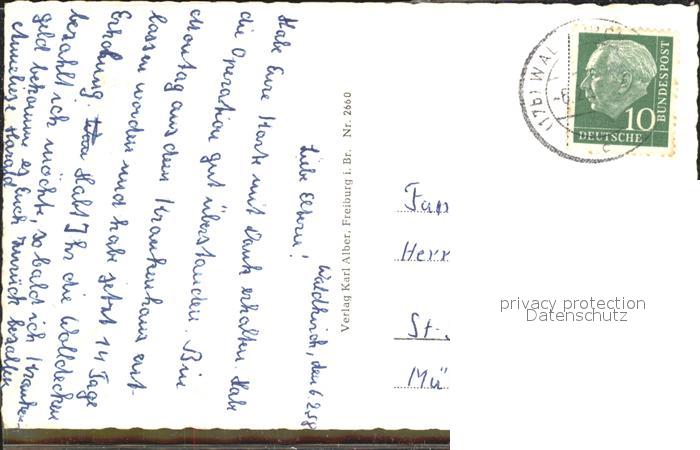 Waldkirch, den 6.2.58
Liebe Eltern!
Habe Eure Karte mit Dank erhalten. Habe
die Operation gut überstanden. Bin
Montag aus dem Krankenhaus ent-
lassen worden und habe jetzt 14 Tage
Erholung. Habt Ihr die Wolldecken
bezahlt ich möchte, sobald ich Kranken-
geld bekomme es Euch zurück bezahlen
Anneliese Harald
Verlag Karl Alber, Freiburg i. Br. Nr. 2660
(17b) WAL
10
BUNDESPOST
DEUTSCHE
Fam
Herr
St.
Mü
privacy protection
Datenschutz